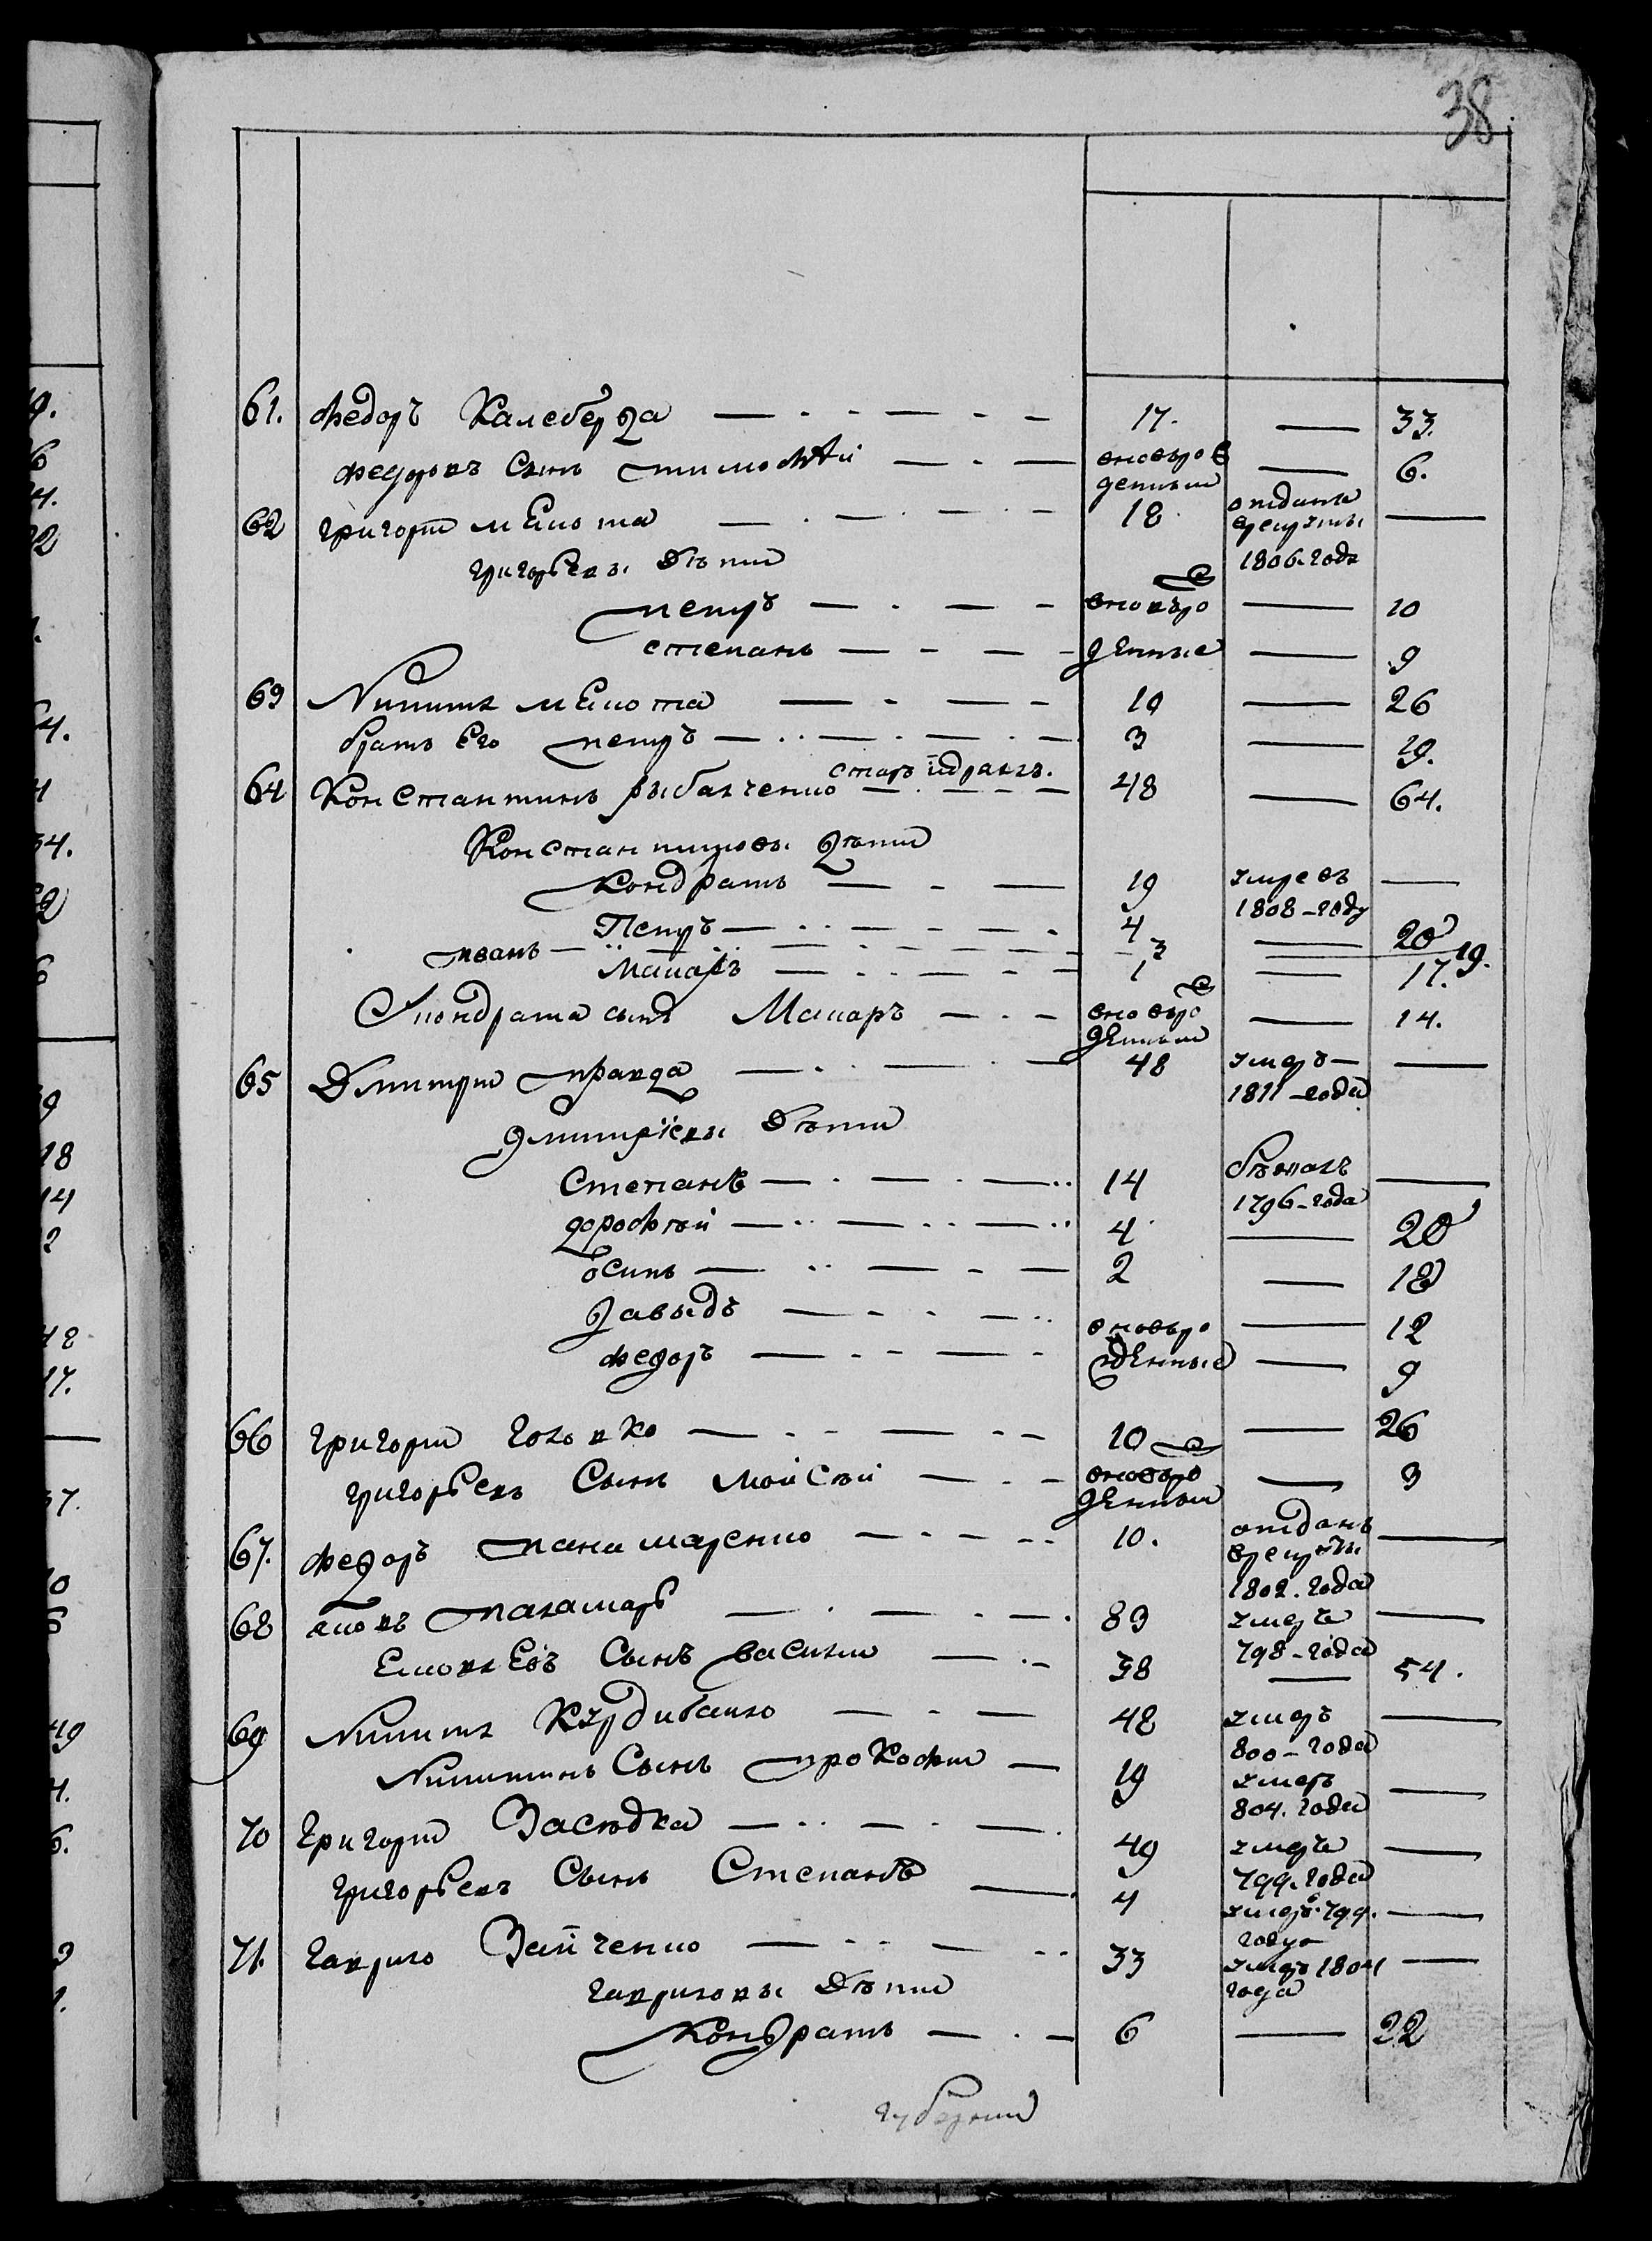 38
61. Федоръ Калеберда 17. 33.
Федоровъ Сынъ тимофѣй вновьро жденныи 6.
62 григори мКлюта 18 отданъ врекруты 1806. года
григорьевы дѣти
петръ вновьро 10
степанъ жденные 9
63 Никита 10 26
братъ Его петръ 3 19.
64 Константинъ рыбалченко 48 64.
Константиновы дѣти
Кондратъ 19 умре въ 1808-году
Петръ 4 20
иванъ 3 19.
Макаръ 1 17.
Скондрата сынъ Макаръ вновьро жденныи 14.
65 Дмитри правда 48 умеръ 1811-года
дмитріевы дѣти
Степанъ 14 бежалъ 1796-года
дорофѣй 4 20
осипъ 2 18
давыдъ вновьро 12
федоръ жденные 9
66 григори головко 10 26
григорьевъ Сынъ мойсѣй вновьро жденныи 3
67. федоръ панамаренко 10. отданъ врекруты 1802. года
68 паламарь 83 умеръ 798-года
Сынъ василии 38 54.
69 Никита Кудрибашко 48 умеръ 800-года
Никитинъ Сынъ прокофи 19 умеръ 804. года
70 Григори Засядка 49 умеръ 799. года
григорьевъ Сынъ Степанъ 4 умеръ 799. года
71. гаврило Зайченко 33 умеръ 1804 года
гавриловы дѣти
Кондратъ 6 22
губернии